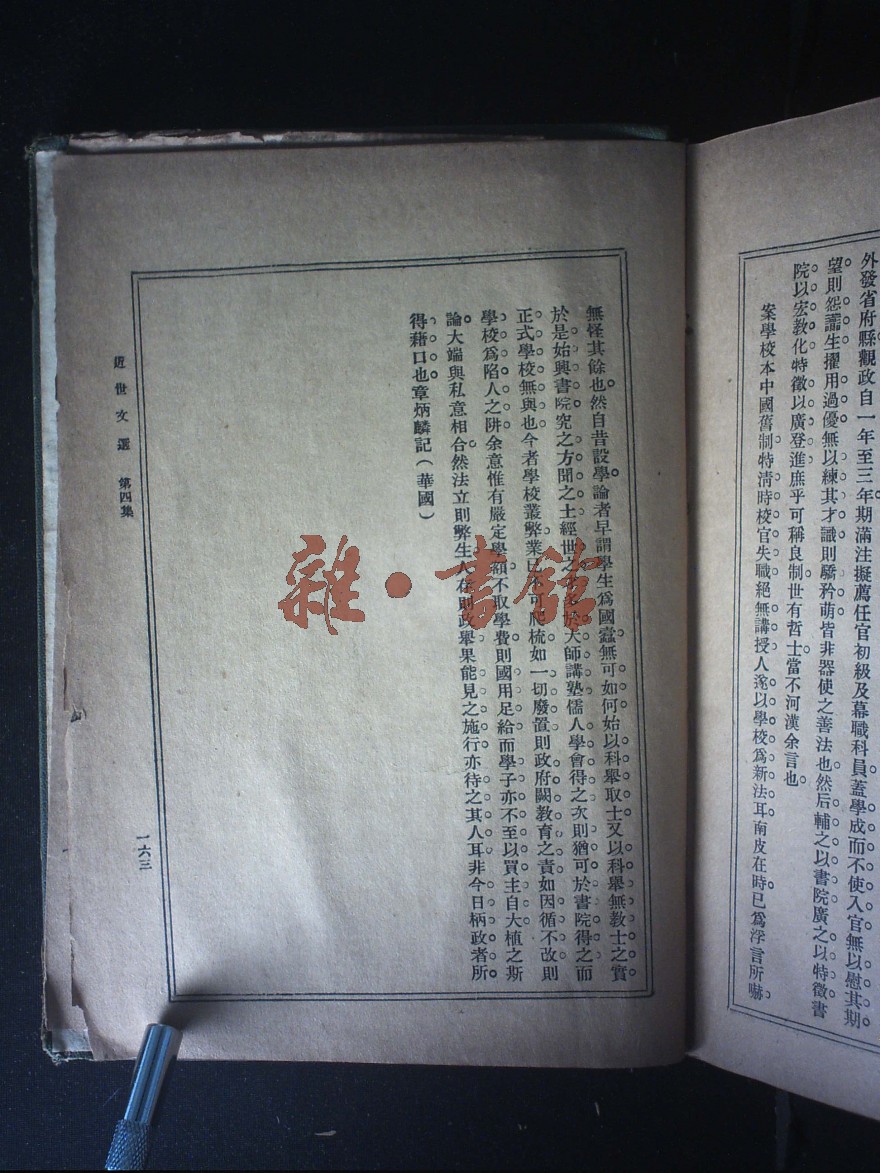 外發省府縣觀政自一年至三年期滿注擬薦任官初級及幕職科員蓋學成而不使入官無以慰其期
望則怨讟生擢用過優無以練其才識則驕矜萌皆非器使之善法也然后輔之以書院廣之以特徵書
院以宏教化特徵以廣登進庶乎可稱良制世有哲士當不河漢余言也
案學校本中國舊制特淸時校官失職絕無講授人遂以學校爲新法耳南皮在時已爲浮言所嚇
無怪其餘也然自昔設學論者早謂學生爲國蠹無可如何始以科舉取士又以科舉無教士之實
於是始興書院究之方聞之士經世之於大師講塾儒人學會得之次則猶可於書院得之而
正式學校無與也今者學校叢弊業已不可爬梳如一切廢置則政府闕教育之責如因循不改則
學校爲陷人之阱余意惟有嚴定學額不取學費則國用足給而學子亦不至以買主自大植之斯
論大端與私意相合然法立則弊生人存則政舉果能見之施行亦待之其人耳非今日柄政者所
得藉口也章炳麟記（華國）
近世文選 第四集
一六三
雜·書館